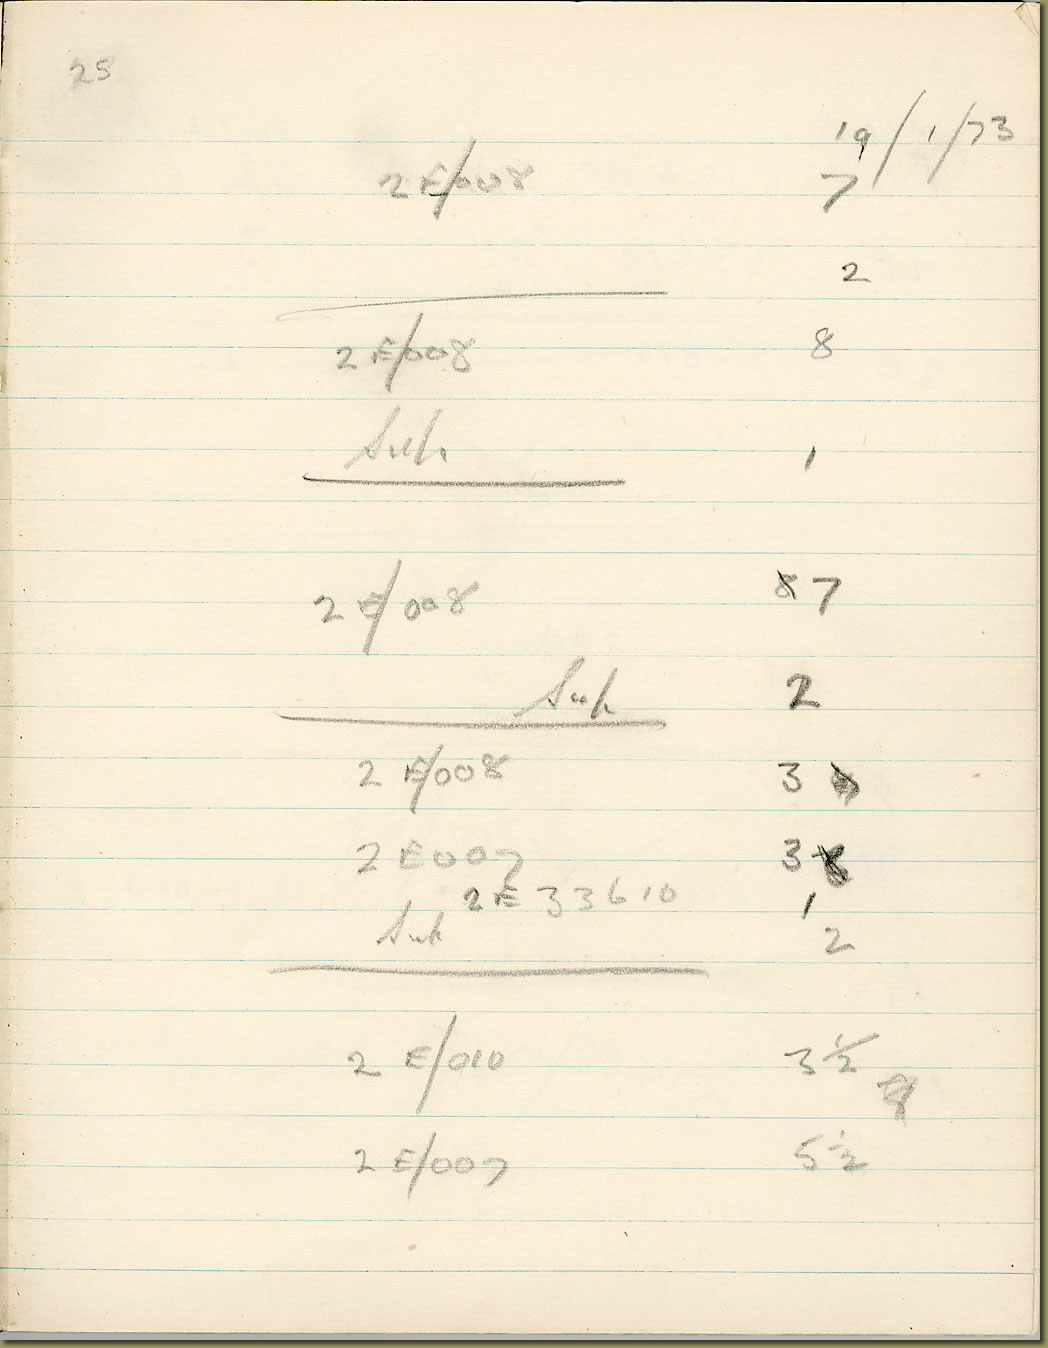 25
19/1/73
2 E/008 7
2
2 E/008 8
Sup. 1
2 E/008 8 7
Sup 2
2 E/008 3
2 E007 3 8
2E 33610 1
Sup 2
2 E/010 3 1/2
2 E/007 5 1/2